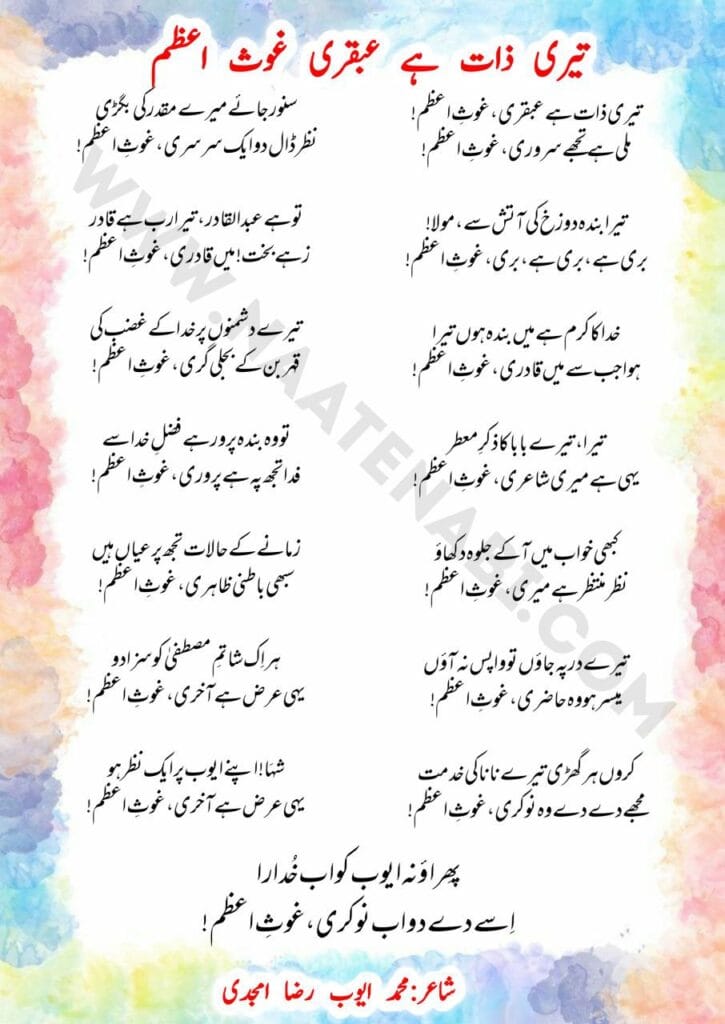 تیری ذات ہے عبقری غوث اعظم
تیری ذات ہے عبقری، غوثِ اعظم!
ملی ہے تجھے سروری، غوثِ اعظم!
سنور جائے میرے مقدر کی بگڑی
نظر ڈال دو ایک سرسری، غوثِ اعظم!
تیرا بندہ دوزخ کی آتش سے، مولا!
بری ہے، بری ہے، بری، غوثِ اعظم!
تو ہے عبد القادر، تیرا رب ہے قادر
زہے بخت! میں قادری، غوثِ اعظم!
خدا کا کرم ہے میں بندہ ہوں تیرا
ہوا جب سے میں قادری، غوثِ اعظم!
تیرے دشمنوں پر خدا کے غضب کی
قہر بن کے بجلی گری، غوثِ اعظم!
تیرا، تیرے بابا کا ذکرِ معطر
یہی ہے میری شاعری، غوثِ اعظم!
تو وہ بندہ پرور ہے فضلِ خدا سے
فدا تجھ پہ ہے پروری، غوثِ اعظم!
کبھی خواب میں آ کے جلوہ دکھاؤ
نظر منتظر ہے میری، غوثِ اعظم!
زمانے کے حالات تجھ پر عیاں ہیں
سبھی باطنی ظاہری، غوثِ اعظم!
تیرے در پہ جاؤں تو واپس نہ آؤں
میسر ہو وہ حاضری، غوثِ اعظم!
ہر اِک شاتمِ مصطفیٰ کو سزا دو
یہی عرض ہے آخری، غوثِ اعظم!
کروں ہر گھڑی تیرے نانا کی خدمت
مجھے دے دے وہ نوکری، غوثِ اعظم!
شہَا! اپنے ایوب پر ایک نظر ہو
یہی عرض ہے آخری، غوثِ اعظم!
پھراؤ نہ ایوب کو اب خُدارا
اِسے دے دو اب نوکری، غوثِ اعظم!
شاعر: محمد ایوب رضا امجدی
WWW.NAATENABI.COM